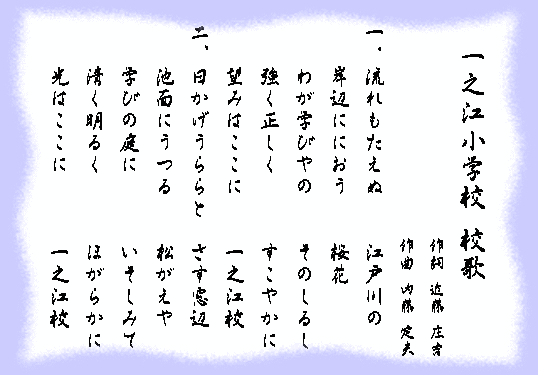 一之江小学校 校歌
作詞 近藤 庄吉
作曲 内藤 定夫
一、流れもたえぬ 江戸川の
岸辺ににおう 桜花
わが学びやの そのしるし
強く正しく すこやかに
望みはここに 一之江校
二、日かげうららと さす窓辺
池面にうつる 松がえや
学びの庭に いそしみて
清く明るく ほがらかに
光はここに 一之江校